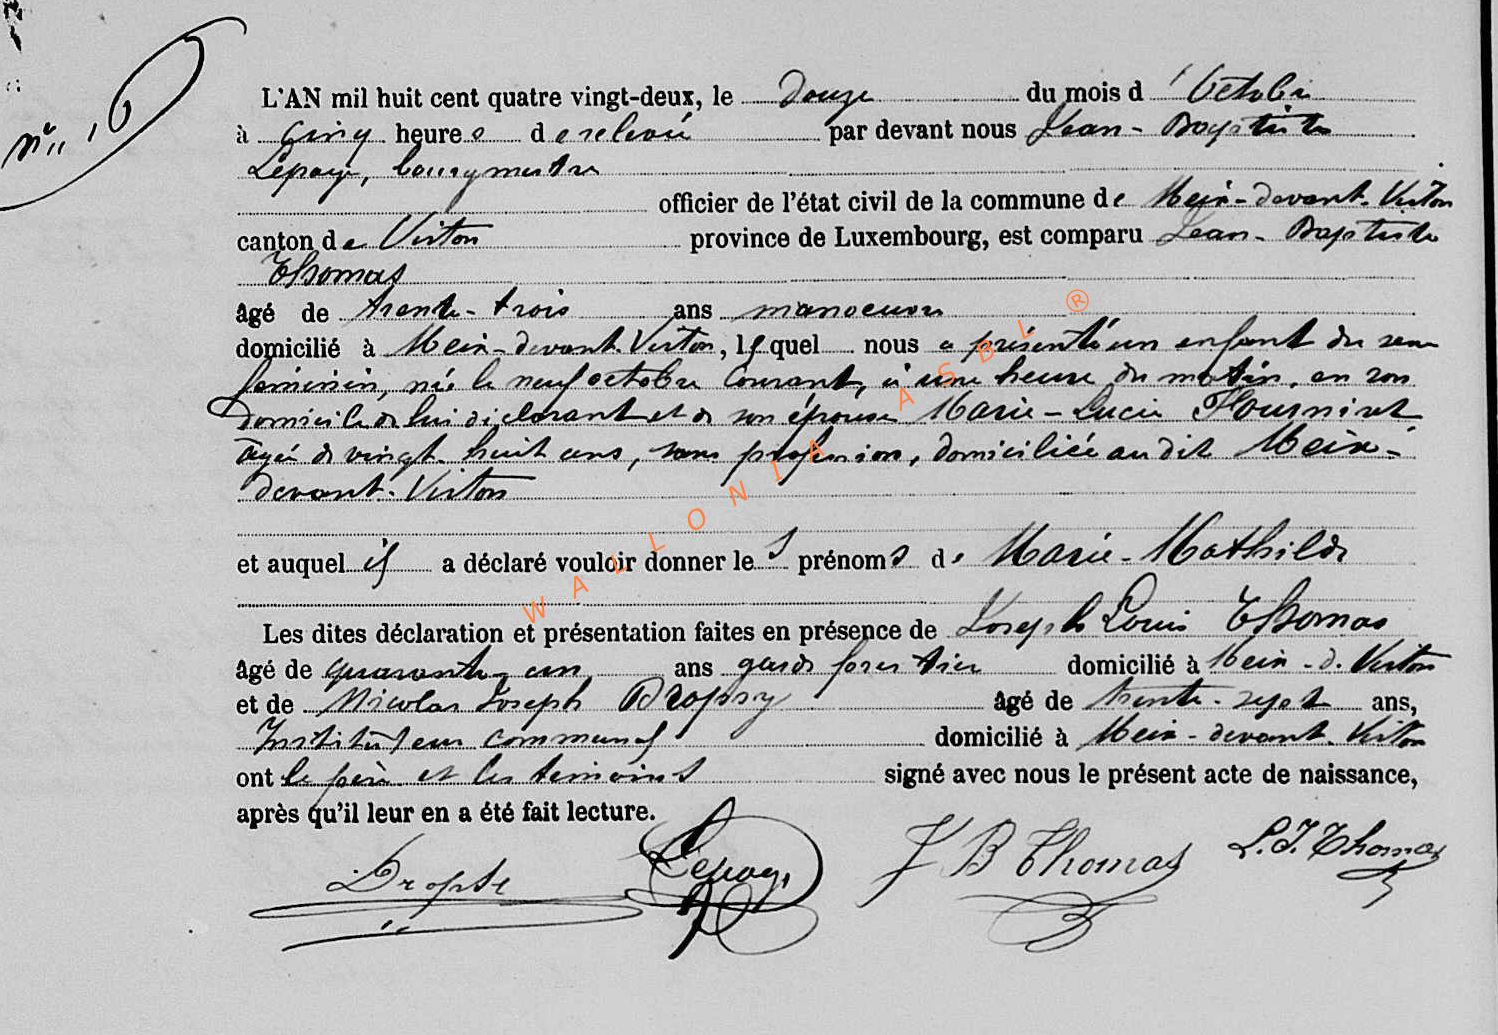 N° 16
L'AN mil huit cent quatre vingt-deux, le douze du mois d'Octobre
à cinq heures de relevée par devant nous Jean-Baptiste
Lepage, bourgmestre
officier de l'état civil de la commune de Meix-devant-Virton
canton de Virton province de Luxembourg, est comparu Jean-Baptiste
Thomas
âgé de trente-trois ans manoeuvre
domicilié à Meix-devant-Virton, lequel nous a présenté un enfant du sexe
féminin, né le neuf octobre courant, à une heure du matin, en son
domicile de lui déclarant et de son épouse Marie-Lucie Fourniret
âgée de vingt-huit ans, sans profession, domiciliée au dit Meix-
devant-Virton
et auquel il a déclaré vouloir donner les prénoms de Marie-Mathilde
Les dites déclaration et présentation faites en présence de Joseph Louis Thomas
âgé de quarante-un ans garde forestier domicilié à Meix-d-Virton
et de Nicolas Joseph Dropsy âgé de trente-sept ans,
Instituteur communal domicilié à Meix-devant-Virton
ont le père et les témoins signé avec nous le présent acte de naissance,
après qu'il leur en a été fait lecture.
Lepage J B Thomas L.J. Thomas
WALLONIA ASBL ®